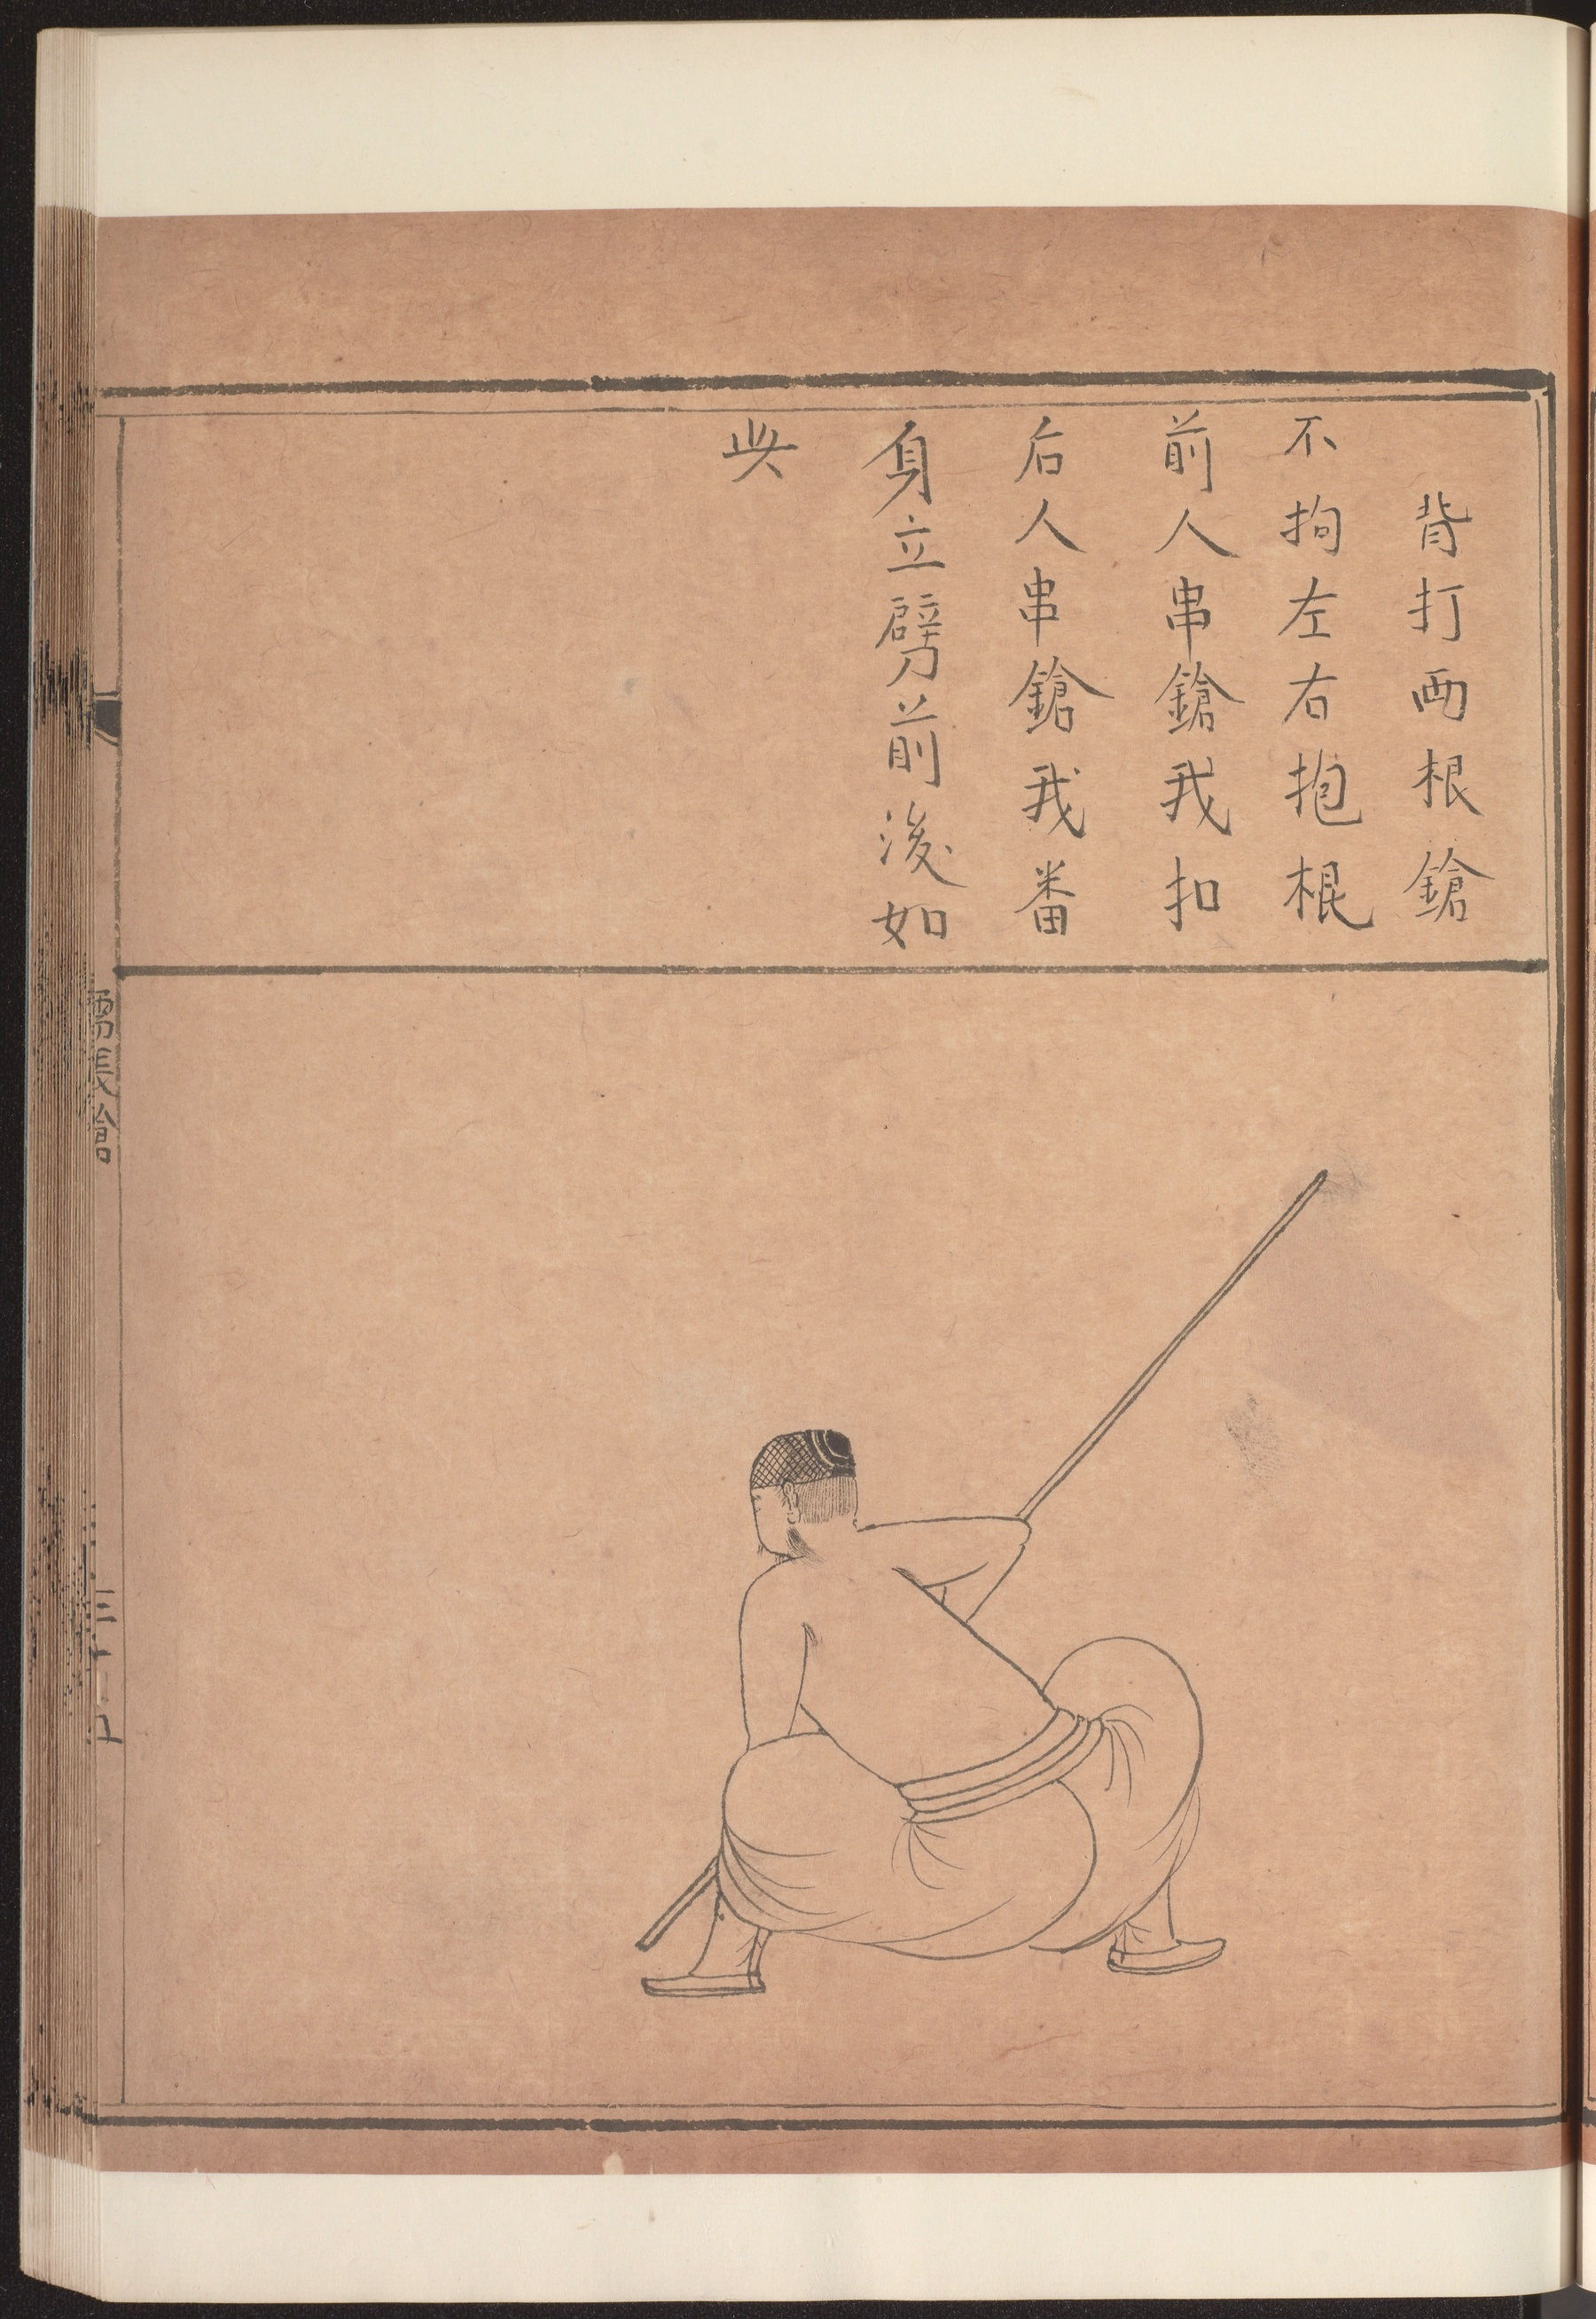 背打両根鎗
不拘左右抱棍
前人串鎗我扣
后人串鎗我番
身立劈前後如
此
長鎗
三十